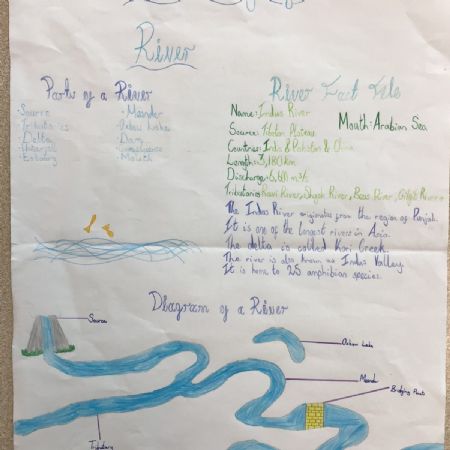 River
Parts of a River
Source
Tributaries
Delta
Waterfall
Estuary
Meander
Oxbow Lake
Dam
Confluence
Mouth
River Fact File
Name: Indus River
Mouth: Arabian Sea
Source: Tibetan Plateau
Countries: India & Pakistan & China
Length: 3,180km
Discharge: 6,600 m³/s
Tributaries: Ravi River, Shyok River, Beas River, Gilgit River
The Indus River originates from the region of Punjab.
It is one of the longest rivers in Asia.
The delta is called Kori Creek.
The river is also known as Indus Valley.
It is home to 25 amphibian species.
Diagram of a River
Source
Oxbow Lake
Meander
Bridging Point
Tributary